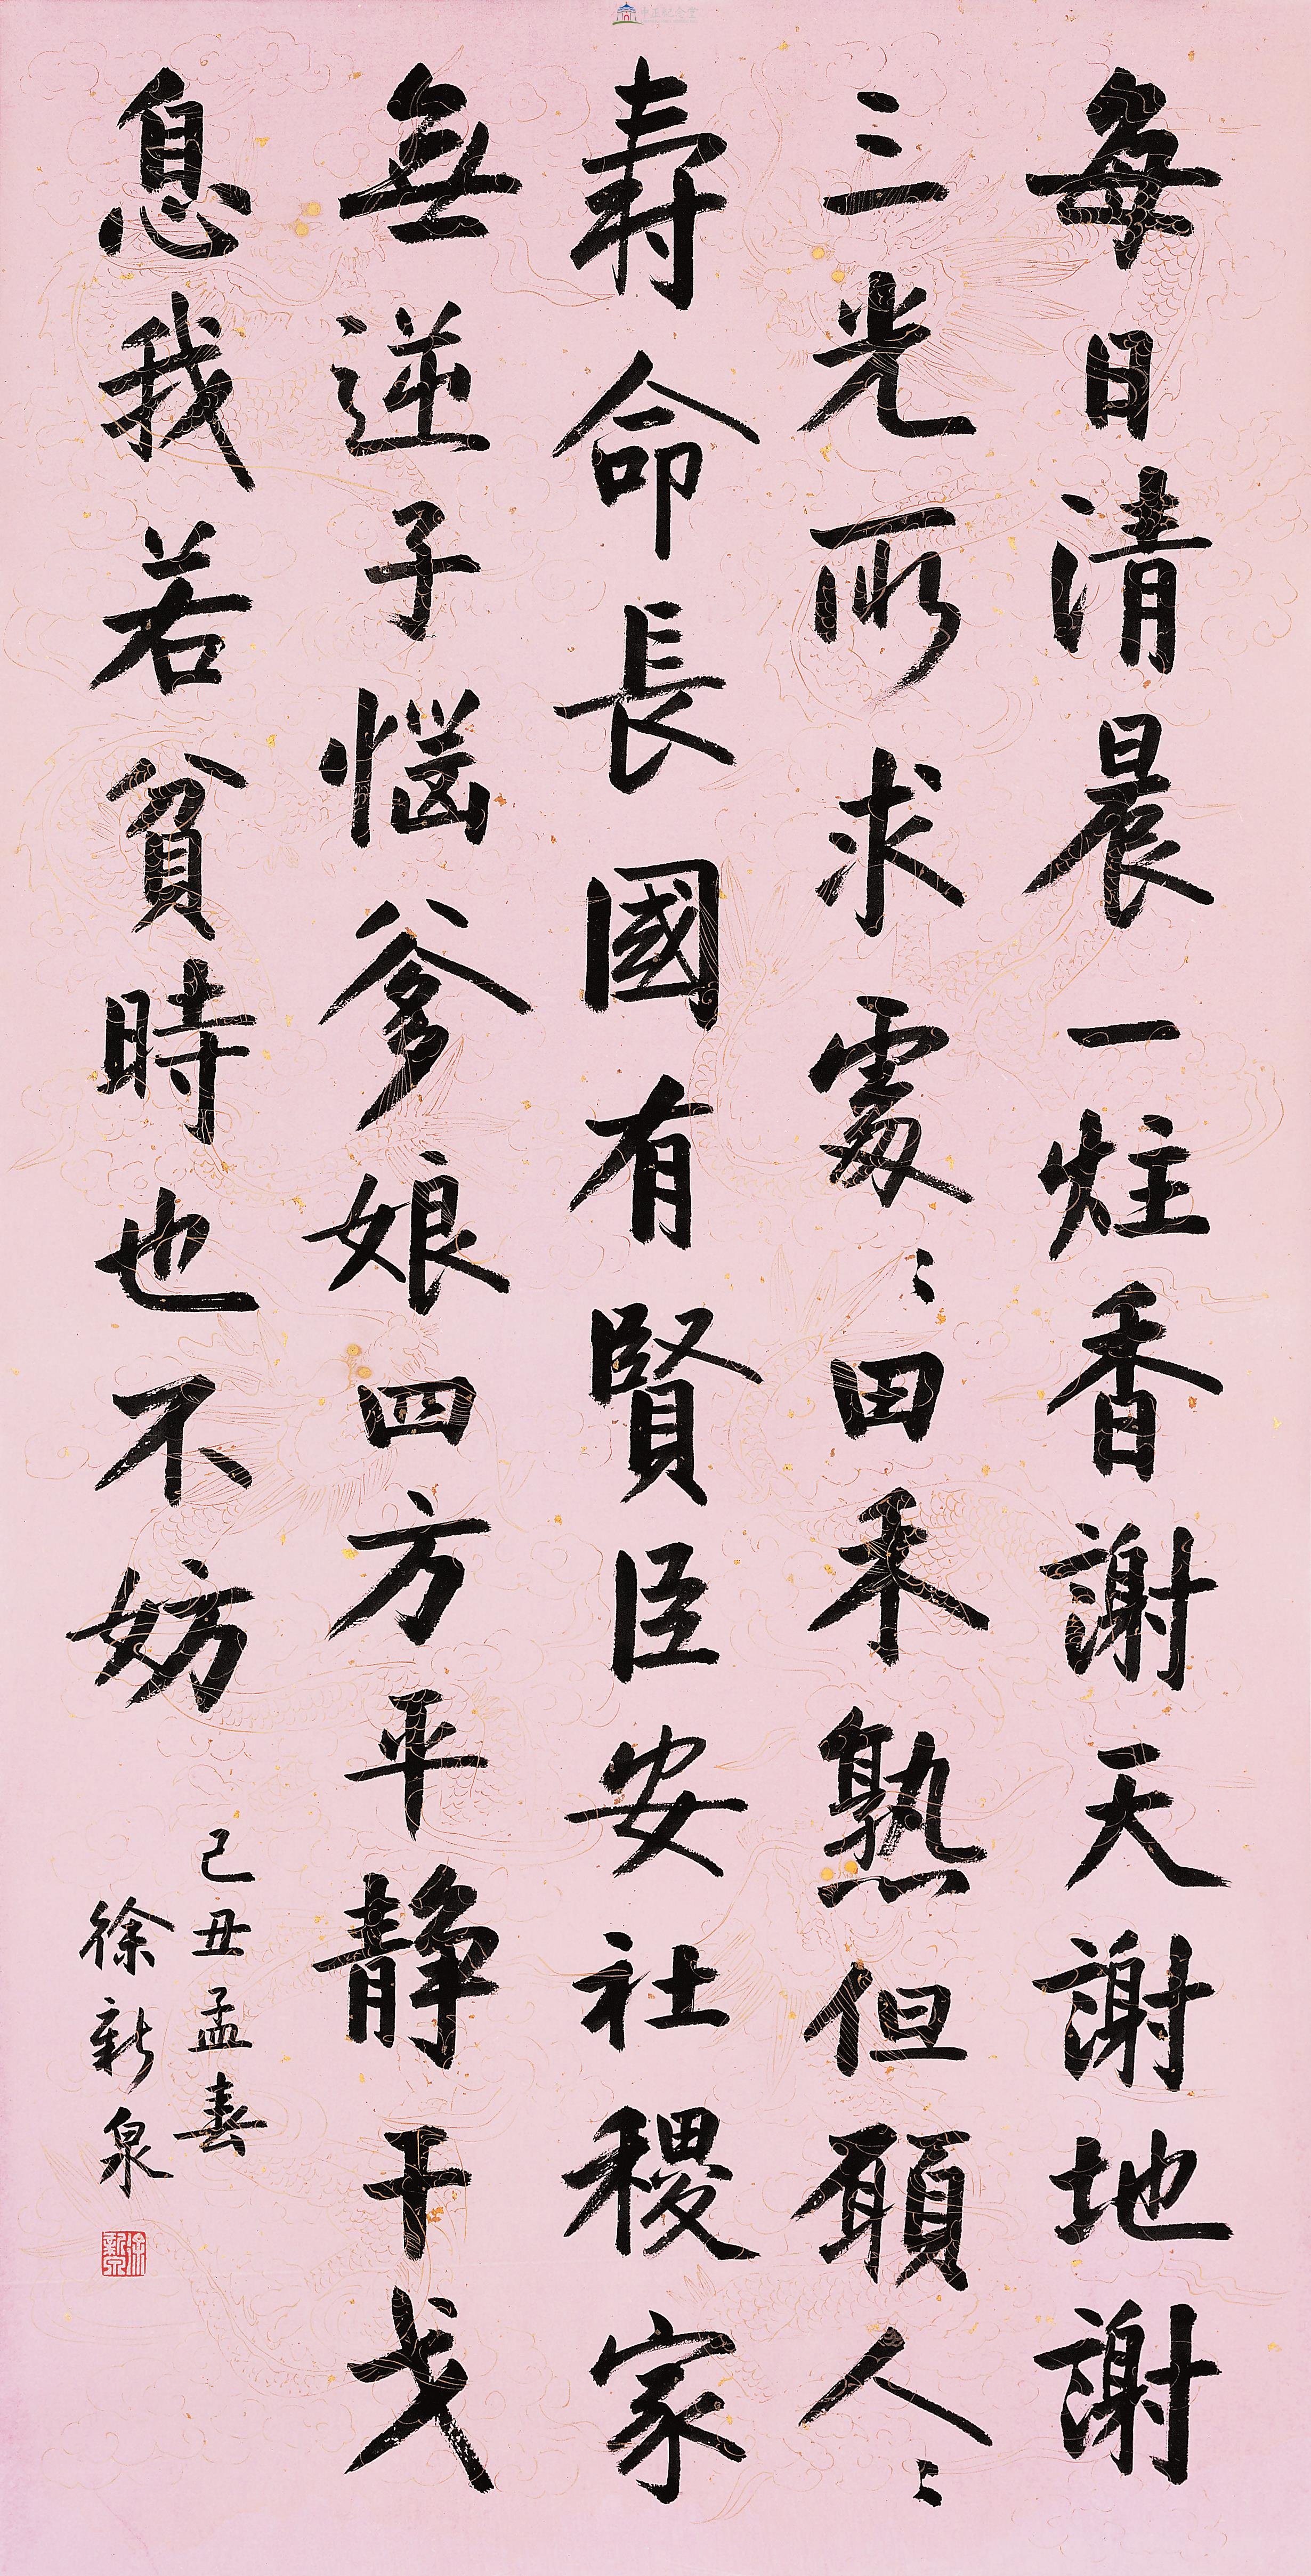 每日清晨一炷香謝天謝地謝
三光所求處〻田禾熟但願人〻
壽命長國有賢臣安社稷家
無逆子惱爹娘四方平靜干戈
息我若貧時也不妨
己丑孟春
徐新泉
徐新泉
中正紀念堂